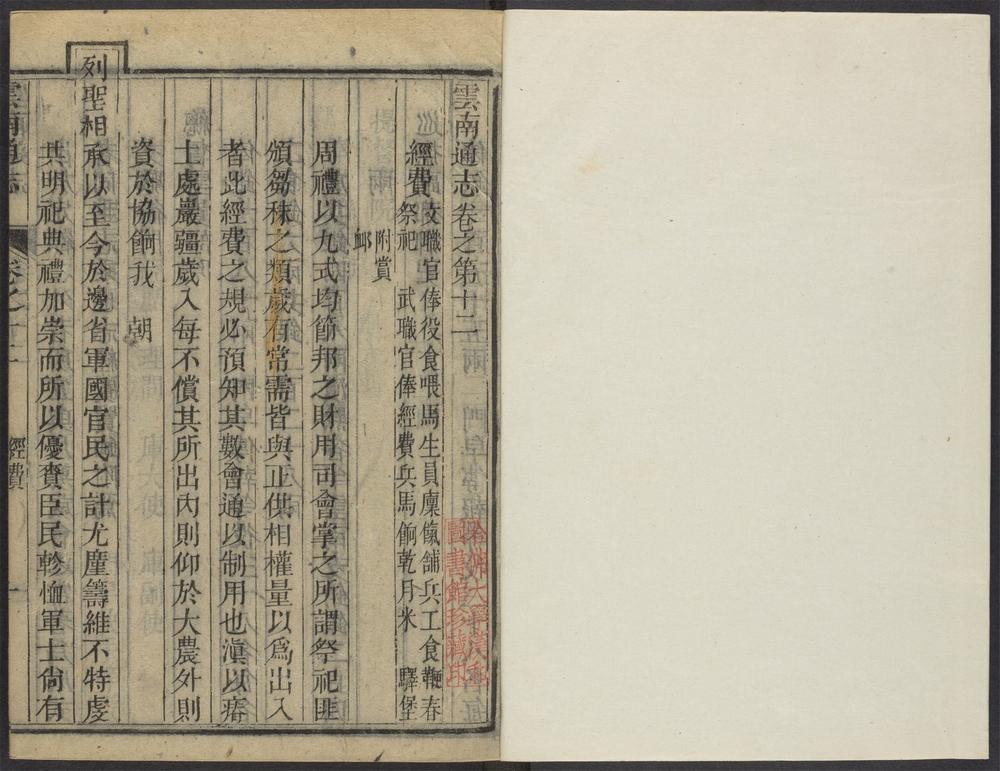 雲南通志卷之第十二
經費
文職官俸役食喂馬生員廩餼舖兵工食鞭春
祭祀 武職官俸經費兵馬餉乾月米 驛堡
附賞
卹
周禮以九式均節邦之財用司會掌之所謂祭祀匪
頒芻秣之類歲有常需皆與正供相權量以爲出入
者此經費之規必預知其數會通以制用也滇以瘠
土處巖疆歲入每不償其所出內則仰於大農外則
資於協餉我 朝
列聖相承以至今於邊省軍國官民之計尤廑籌維不特虔
共明祀典禮加崇而所以優賚臣民軫恤軍士尙有
雲南通志
卷之十二
經費
一
哈佛大學漢和
圖書館珍藏印